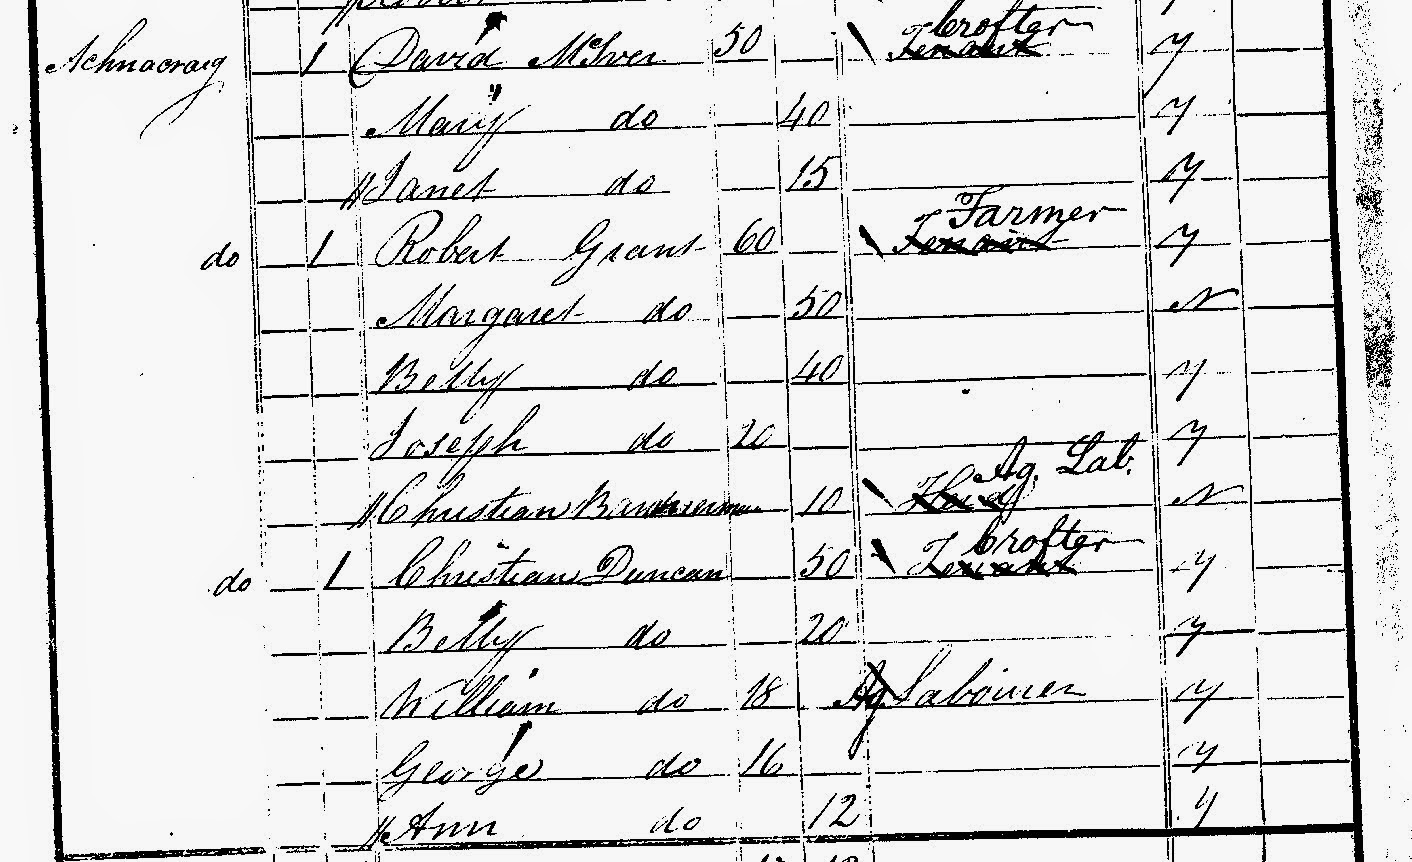 Achnacraig 1 David McIver 50 Crofter Tenant y
Mary do 40 y
Janet do 15 y
do 1 Robert Grant 60 Farmer Tenant y
Margaret do 50 N
Betty do 40 y
Joseph do 20 y
Christian Bannerman 10 Ag. Lab. N
do 1 Christian Duncan 50 Crofter Tenant y
Betty do 20 y
William do 18 Ag Labourer y
George do 16 y
Ann do 12 y